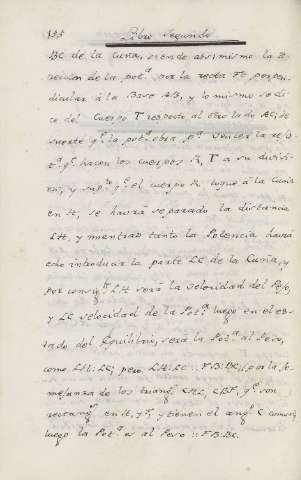 135 Libro Segundo
BC de la Cuña, siendo absimismo la di-
reccion de la pot.ª por la recta FC perpen-
dicular á la Base AB, y lo mismo se di-
ce del Cuerpo T respecto al otro lado AC; de
suerte q.e la pot.ª obra p.ª vencer la resis-
t.ª q.e hacen los cuerpos R, T a su divisi-
on, y sup.to q.e el cuerpo R toque á la Cuña
en H, se havrá separado la distancia
LH, y mientras tanto la Potencia havrá
echo introducir la parte LC de la Cuña, y
por consig.te LH será la velocidad del Peso,
y LC velocidad de la Pot.ª luego en el es-
tado del Equilibrio, será la Pot.ª al Peso,
como LH: LC; pero LH: LC :: FB: BC, por la se-
mejanza de los triang.s CHL, CBF, q.e son
rectang.s en H, y F, y tienen el ang.o C comun,
luego la Pot.ª es al Peso :: FB: BC.